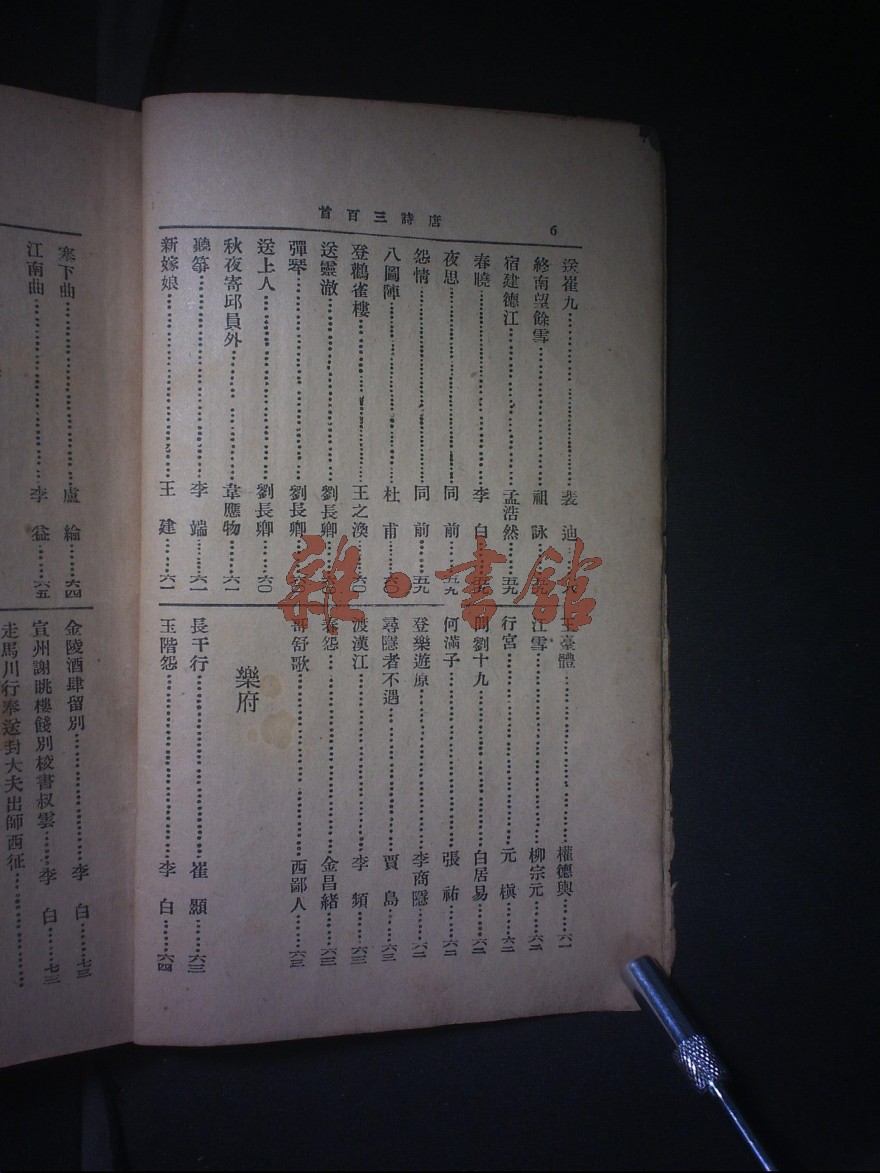 唐詩三百首
6
送崔九……裴迪……
終南望餘雪……祖詠……五九
宿建德江……孟浩然……五九
春曉……李白……五九
夜思……同前……五九
怨情……同前……五九
八圖陣……杜甫……六〇
登鸛雀樓……王之渙……六〇
送靈澈……劉長卿……六〇
彈琴……劉長卿……六〇
送上人……劉長卿……六〇
秋夜寄邱員外……韋應物……六一
聽箏……李端……六一
新嫁娘……王建……六一
玉臺體……權德輿……六一
江雪……柳宗元……六二
行宮……元稹……六二
問劉十九……白居易……六二
何滿子……張祐……六二
登樂遊原……李商隱……六二
尋隱者不遇……賈島……六三
渡漢江……李頻……六三
春怨……金昌緒……六三
哥舒歌……西鄙人……六三
樂府
長干行……崔顥……六三
玉階怨……李白……六四
塞下曲……盧綸……六四
江南曲……李益……六五
金陵酒肆留別……李白……七三
宣州謝朓樓餞別校書叔雲……李白……七三
走馬川行奉送封大夫出師西征……
雜·書館